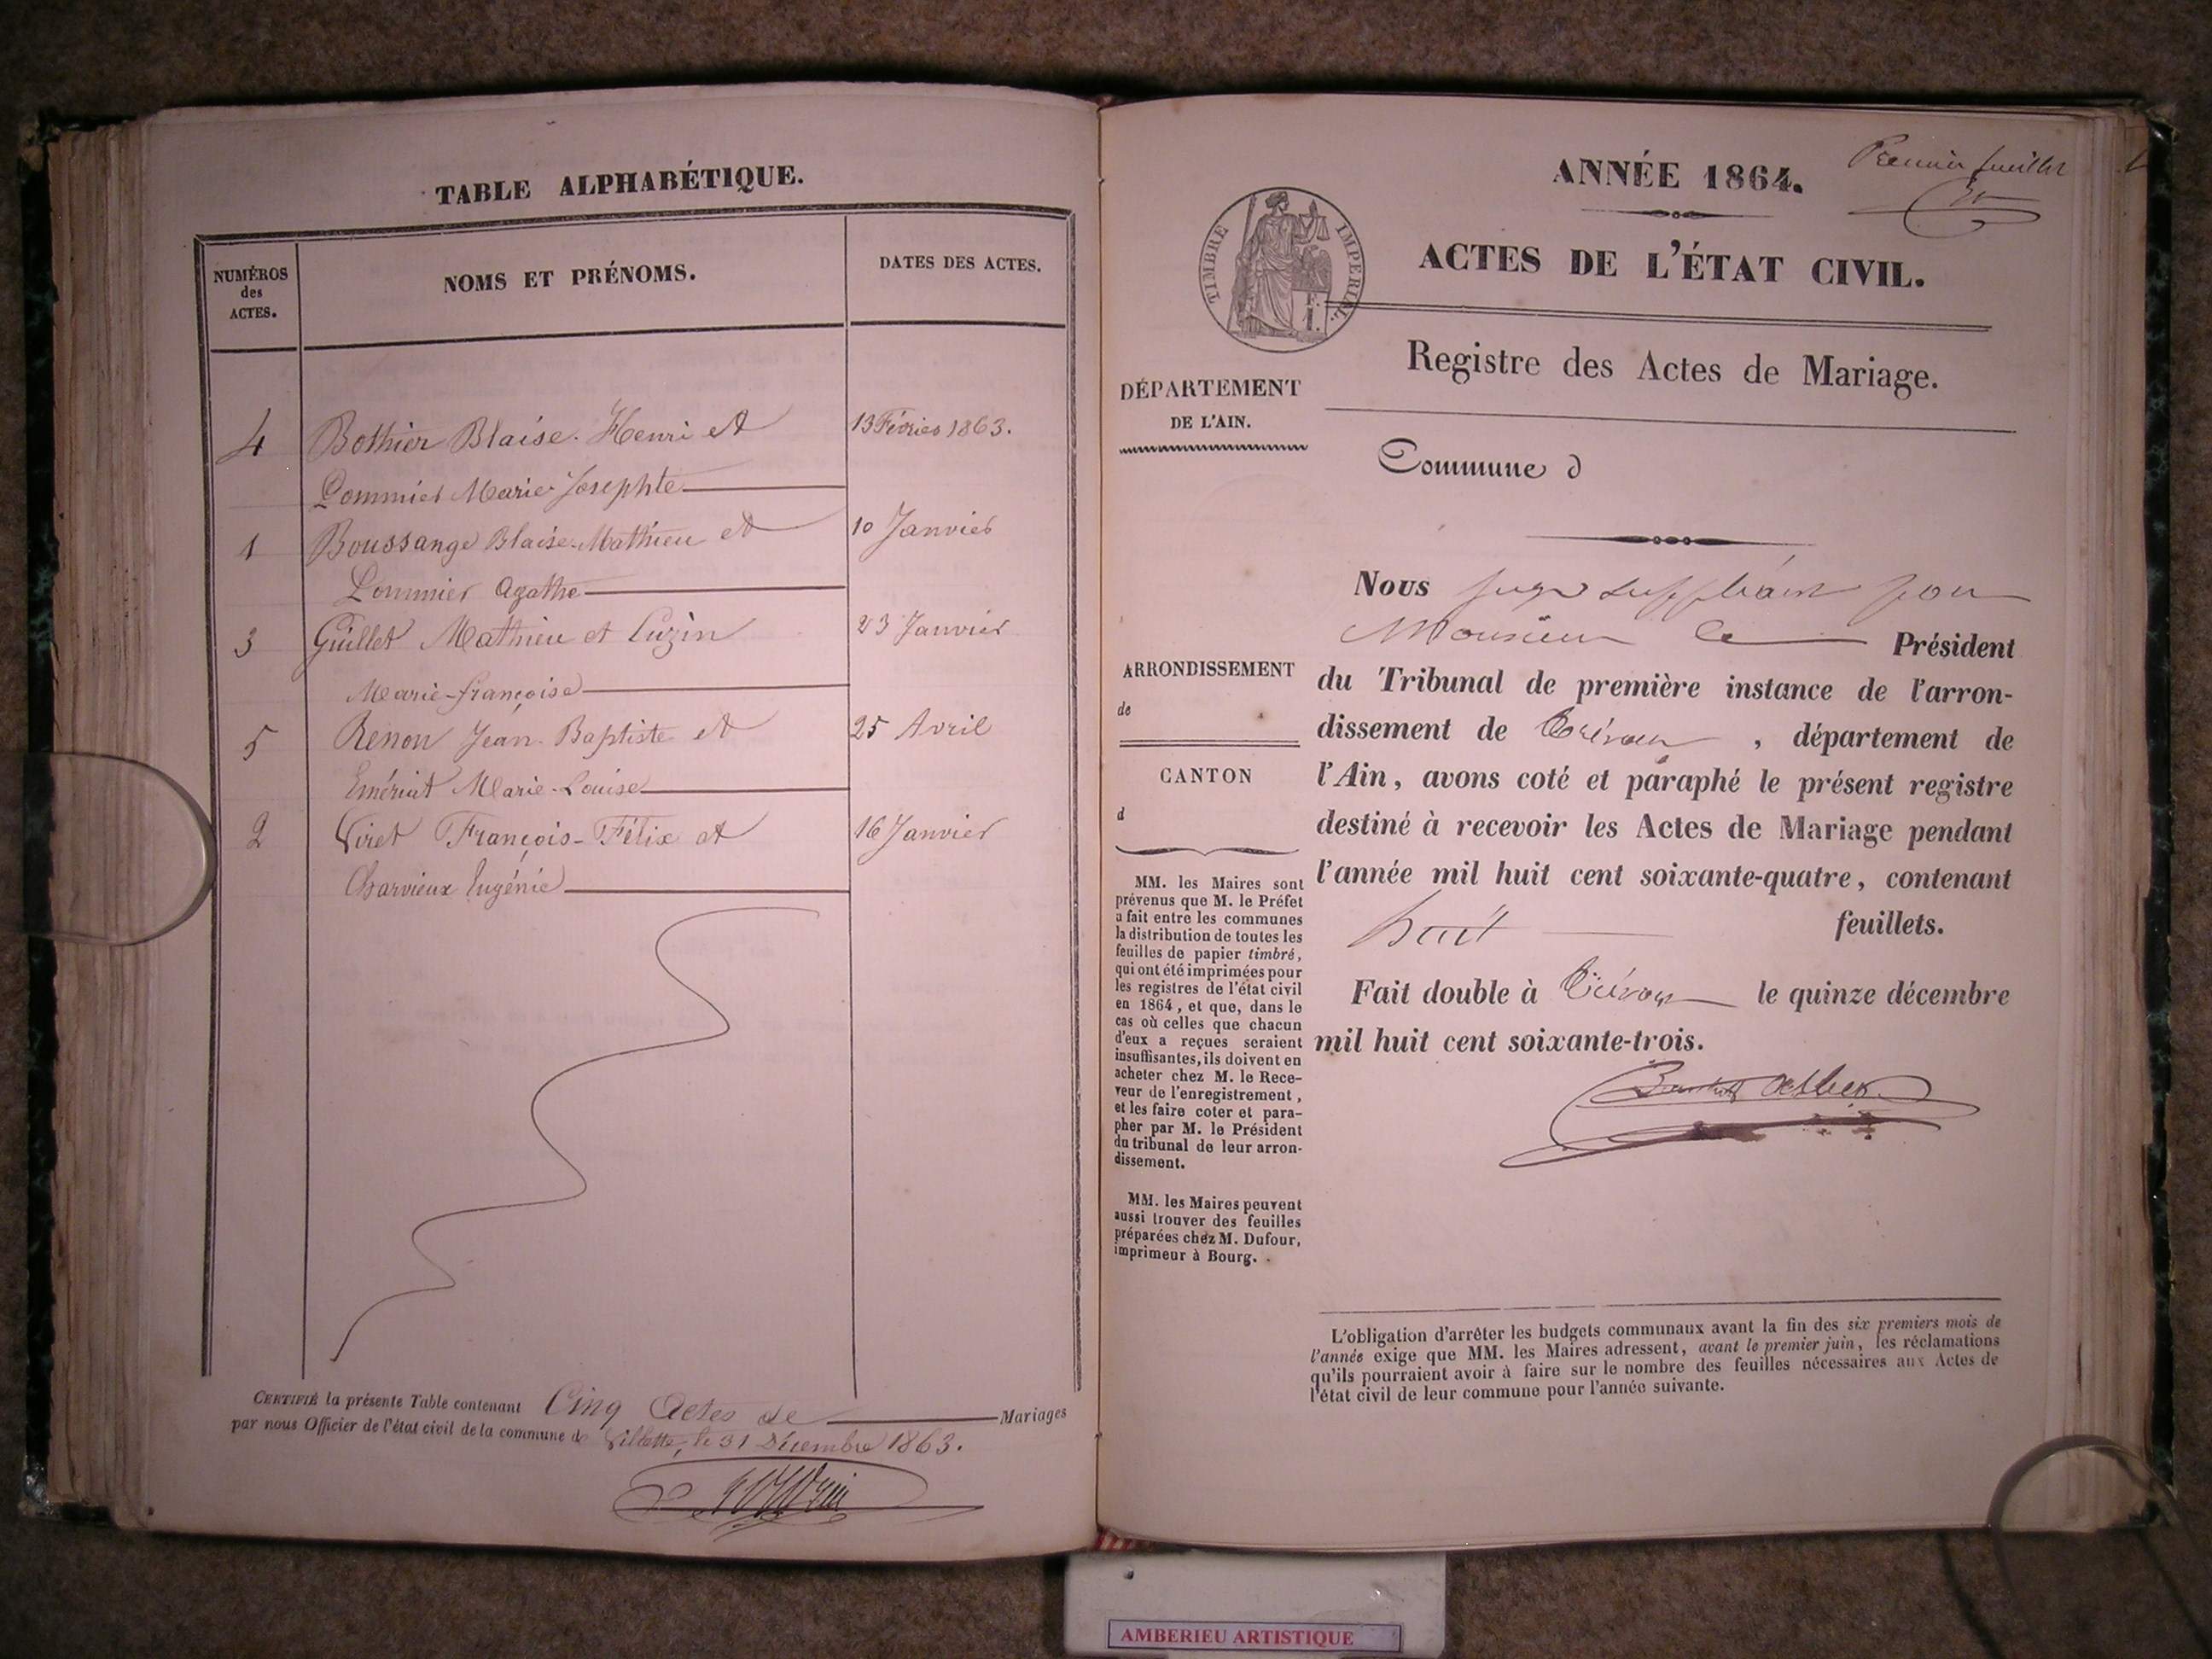 TABLE ALPHABÉTIQUE.
NUMÉROS
des
ACTES.
NOMS ET PRÉNOMS.
DATES DES ACTES.
4 Bothier Blaise. Henri et 13 Février 1863.
Pommier Marie Josephte
1 Boussange Blaise-Mathieu et 10 Janvier
Pommier Agathe
3 Guillet Mathieu et Luzin 23 Janvier
Marie-françoise
5 Renon Jean-Baptiste et 25 Avril
Emériat Marie-Louise
2 Viret François-Félix et 16 Janvier
Charvieux Eugénie
CERTIFIÉ la présente Table contenant Cinq Actes de Mariages
par nous Officier de l'état civil de la commune de Villette, le 31 Décembre 1863.
Premier feuillet
ANNÉE 1864.
TIMBRE IMPERIAL.
ACTES DE L'ÉTAT CIVIL.
Registre des Actes de Mariage.
DÉPARTEMENT
DE L'AIN.
Commune d
ARRONDISSEMENT
de
CANTON
d
MM. les Maires sont
prévenus que M. le Préfet
a fait entre les communes
la distribution de toutes les
feuilles de papier timbré,
qui ont été imprimées pour
les registres de l'état civil
en 1864, et que, dans le
cas où celles que chacun
d'eux a reçues seraient
insuffisantes, ils doivent en
acheter chez M. le Rece-
veur de l'enregistrement,
et les faire coter et para-
pher par M. le Président
du tribunal de leur arron-
dissement.
MM. les Maires peuvent
aussi trouver des feuilles
préparées chez M. Dufour,
imprimeur à Bourg.
Nous juge suppléant pour
Monsieur le Président
du Tribunal de première instance de l'arron-
dissement de Trévoux, département de
l'Ain, avons coté et paraphé le présent registre
destiné à recevoir les Actes de Mariage pendant
l'année mil huit cent soixante-quatre, contenant
huit feuillets.
Fait double à Trévoux le quinze décembre
mil huit cent soixante-trois.
L'obligation d'arrêter les budgets communaux avant la fin des six premiers mois de
l'année exige que MM. les Maires adressent, avant le premier juin, les réclamations
qu'ils pourraient avoir à faire sur le nombre des feuilles nécessaires aux Actes de
l'état civil de leur commune pour l'année suivante.
AMBERIEU ARTISTIQUE